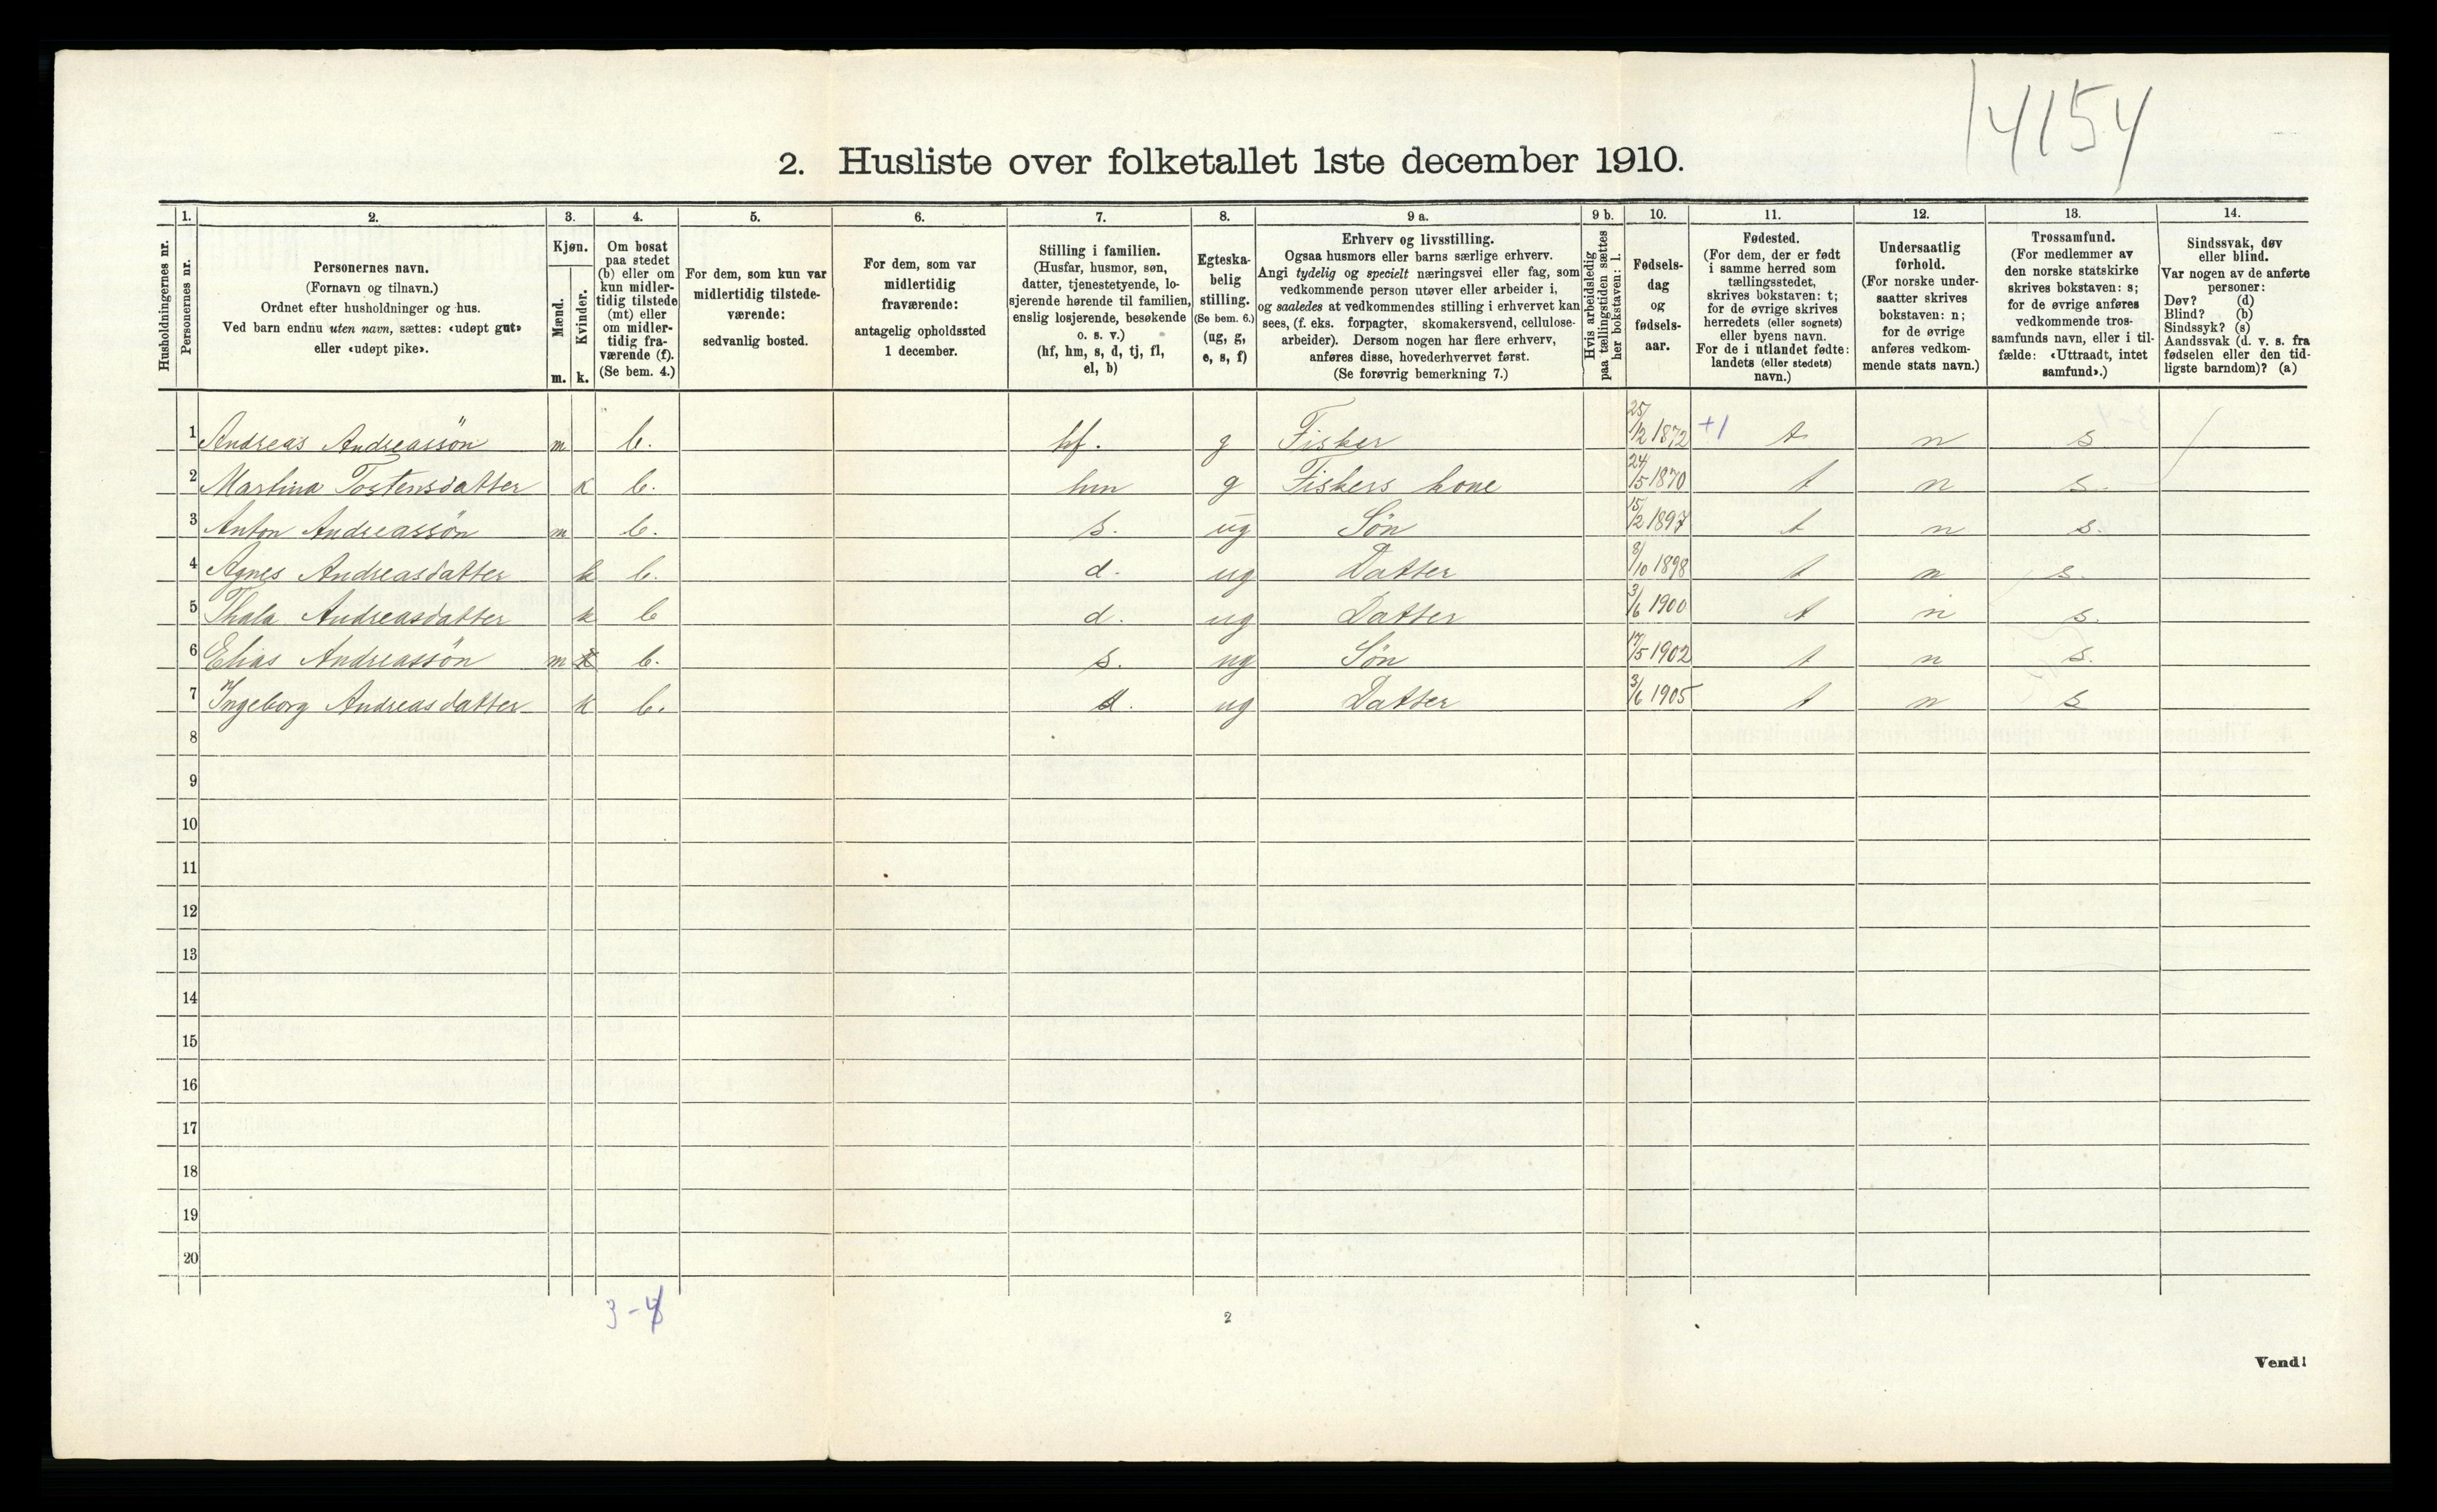 14154
2. Husliste over folketallet 1ste december 1910.
Husholdningernes nr.
1.
Personernes nr.
2.
Personernes navn.
(Fornavn og tilnavn.)
Ordnet efter husholdninger og hus.
Ved barn endnu uten navn, sættes: «udøpt gut»
eller «udøpt pike».
3.
Kjøn.
Mænd.
Kvinder.
m. k.
4.
Om bosat
paa stedet
(b) eller om
kun midler-
tidig tilstede
(mt) eller
om midler-
tidig fra-
værende (f).
(Se bem. 4.)
5.
For dem, som kun var
midlertidig tilstede-
værende:
sedvanlig bosted.
6.
For dem, som var
midlertidig
fraværende:
antagelig opholdssted
1 december.
7.
Stilling i familien.
(Husfar, husmor, søn,
datter, tjenestetyende, lo-
sjerende hørende til familien,
enslig losjerende, besøkende
o. s. v.)
(hf, hm, s, d, tj, fl,
el, b)
8.
Egteska-
belig
stilling.
(Se bem. 6.)
(ug, g,
e, s, f)
9 a.
Erhverv og livsstilling.
Ogsaa husmors eller barns særlige erhverv.
Angi tydelig og specielt næringsvei eller fag, som
vedkommende person utøver eller arbeider i,
og saaledes at vedkommendes stilling i erhvervet kan
sees, (f. eks. forpagter, skomakersvend, cellulose-
arbeider). Dersom nogen har flere erhverv,
anføres disse, hovederhvervet først.
(Se forøvrig bemerkning 7.)
9 b.
Hvis arbeidsledig
paa tællingstiden sættes
her bokstaven: l.
10.
Fødsels-
dag
og
fødsels-
aar.
11.
Fødested.
(For dem, der er født
i samme herred som
tællingsstedet,
skrives bokstaven: t;
for de øvrige skrives
herredets (eller sognets)
eller byens navn.
For de i utlandet fødte:
landets (eller stedets)
navn.)
12.
Undersaatlig
forhold.
(For norske under-
saatter skrives
bokstaven: n;
for de øvrige
anføres vedkom-
mende stats navn.)
13.
Trossamfund.
(For medlemmer av
den norske statskirke
skrives bokstaven: s;
for de øvrige anføres
vedkommende tros-
samfunds navn, eller i til-
fælde: «Uttraadt, intet
samfund».)
14.
Sindssvak, døv
eller blind.
Var nogen av de anførte
personer:
Døv? (d)
Blind? (b)
Sindssyk? (s)
Aandssvak (d. v. s. fra
fødselen eller den tid-
ligste barndom)? (a)
1 Andreas Andreassön m b. hf. g Fisker 25/12 1872 +1 t n s
2 Martina Tostensdatter k b. hm g Fiskers kone 24/5 1870 t n s.
3 Anton Andreassön m b. s. ug Sön 15/2 1897 t n s.
4 Agnes Andreasdatter k b. d. ug Datter 8/10 1898 t n s.
5 Thala Andreasdatter k b d. ug Datter 3/6 1900 t n s.
6 Elias Andreassön m k b. s. ug Sön 17/5 1902 t n s.
7 Ingeborg Andreasdatter k b. d. ug Datter 3/6 1905 t n s
8
9
10
11
12
13
14
15
16
17
18
19
20
3-4
2
Vend!